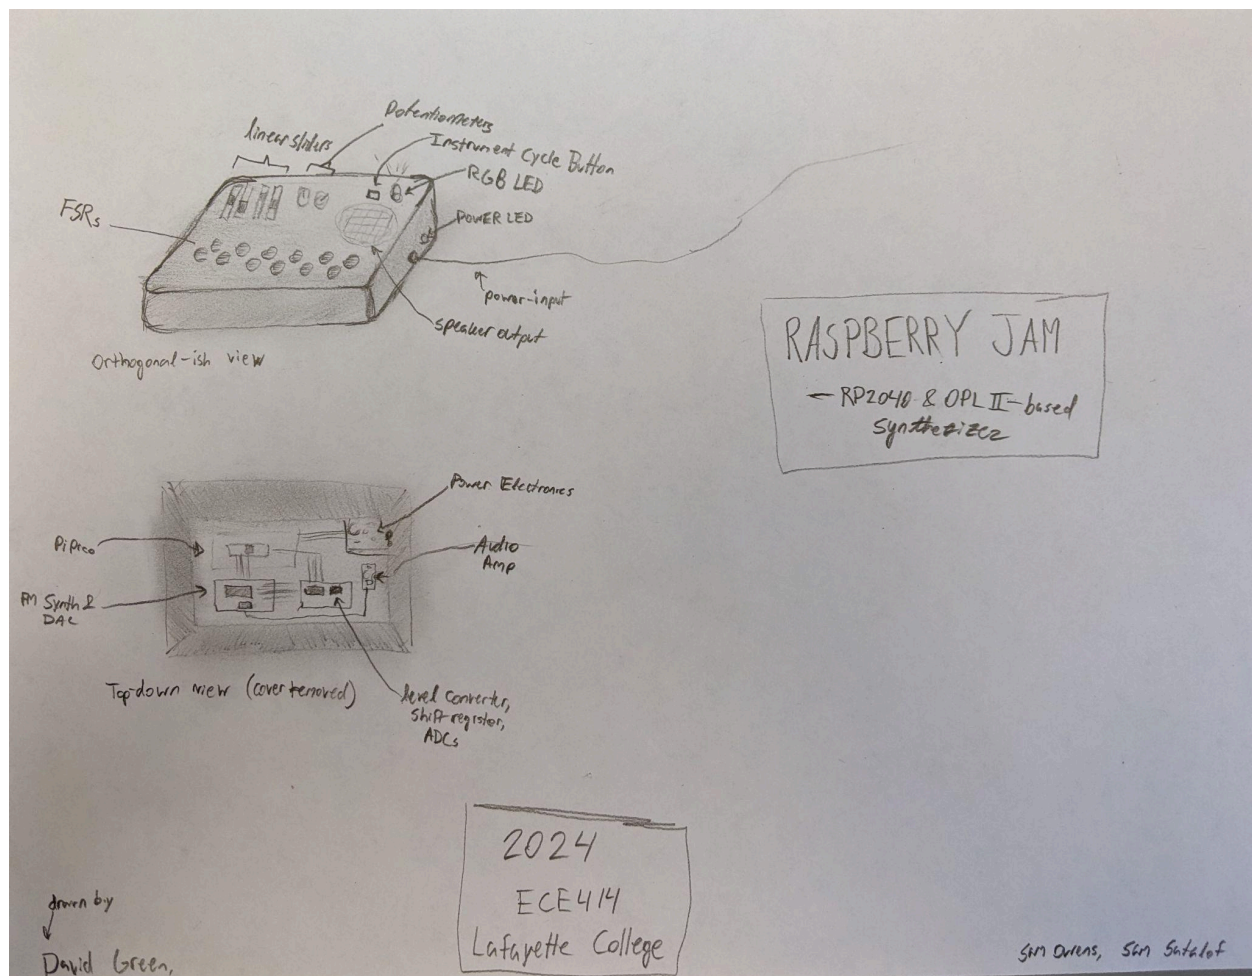 Potentiometers
linear sliders
Instrument Cycle Button
RGB LED
FSRs
POWER LED
power-input
speaker output
Orthogonal-ish view
RASPBERRY JAM
RP2040 & OPL II-based
Synthesizer
Power Electronics
PiPico
Audio
Amp
FM Synth &
DAC
Top-down view (cover removed)
level converter,
shift-register,
ADCs
2024
ECE414
Lafayette College
drawn by
David Green,
Sam Owens, Sam Satalof